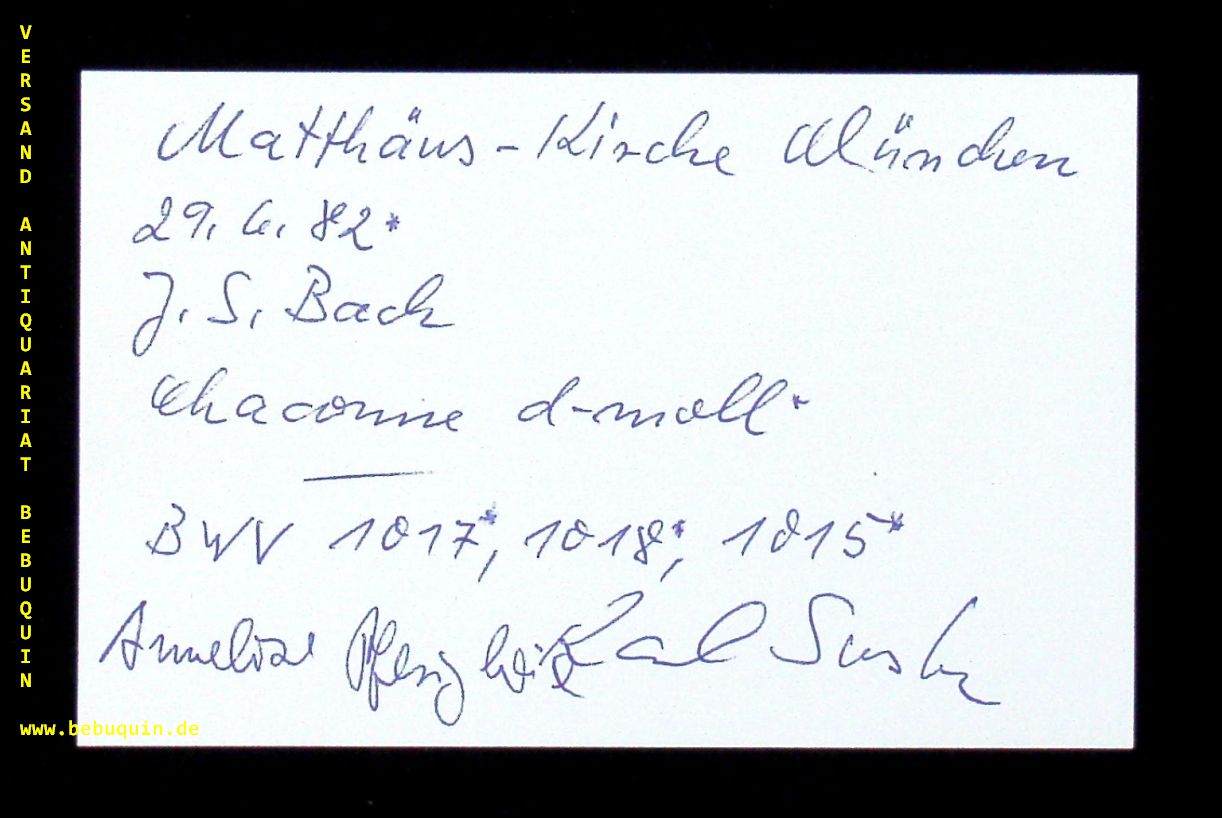 VERSAND ANTIQUARIAT BEBUQUIN
Matthäus-Kirche München
29. 6. 82*
J. S. Bach
Chaconne d-moll*
BWV 1017*, 1018*, 1015*
Annelise Karl Suske
www.bebuquin.de